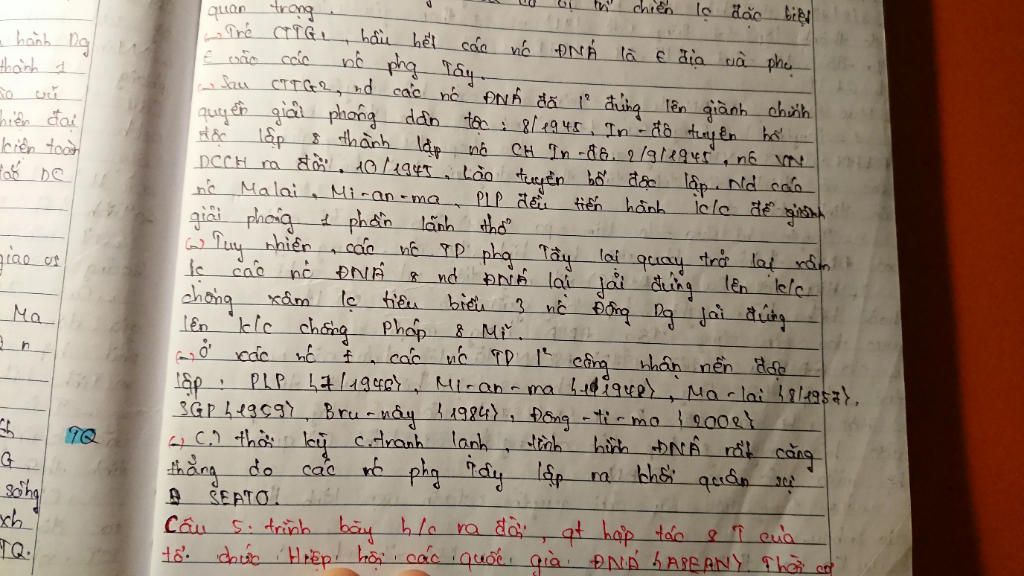 hành Dg
thành 1
hiện đại
kiên toàn
tắc DC
giao
Ma
TQ
sông
xh
TQ.
vị trí chiến lc đặc biệt
quan trọng.
Trc CTTG1, hầu hết các nc ĐNÁ là € địa và phụ
€ vào các nc phg Tây.
Sau CTTG2, nd các nc ĐNÁ đã lº đứng lên giành chính
quyền giải phóng dân tộc: 8/1945. In-đô tuyên bố
độc lập & thành lập nc CH In-đô. 2/9/1945, nc VN
DCCH ra đời. 10/1945. Lào tuyên bố độc lập. Nd các
nc Malai, Mi-an-ma, PLP đều tiến hành k/c để giành
giải phóng 1 phần lãnh thổ
Tuy nhiên, các nc TD phg Tây lại quay trở lại xâm
lc các nc ĐNÁ & nd ĐNÁ lại fải đứng lên k/c
chống xâm lc tiêu biểu 3 nc Đông Dg fải đứng
lên k/c chống Pháp & Mĩ.
Ở các nc ≠, các nc TD lº công nhận nền độc
lập: PLP {7/1946}, Mi-an-ma {1/1948}, Ma-lai {8/1957},
SGP {1959}, Bru-nây {1984}, Đông-ti-mo {2002}
thời kỳ c.tranh lạnh, tình hình ĐNÁ rất căng
thẳng do các nc phg Tây lập ra khối quân sự
SEATO.
Câu 5. trình bày h/c ra đời, qt hợp tác & T của
tổ chức Hiệp hội các quốc gia ĐNÁ {ASEAN}. Thời cơ